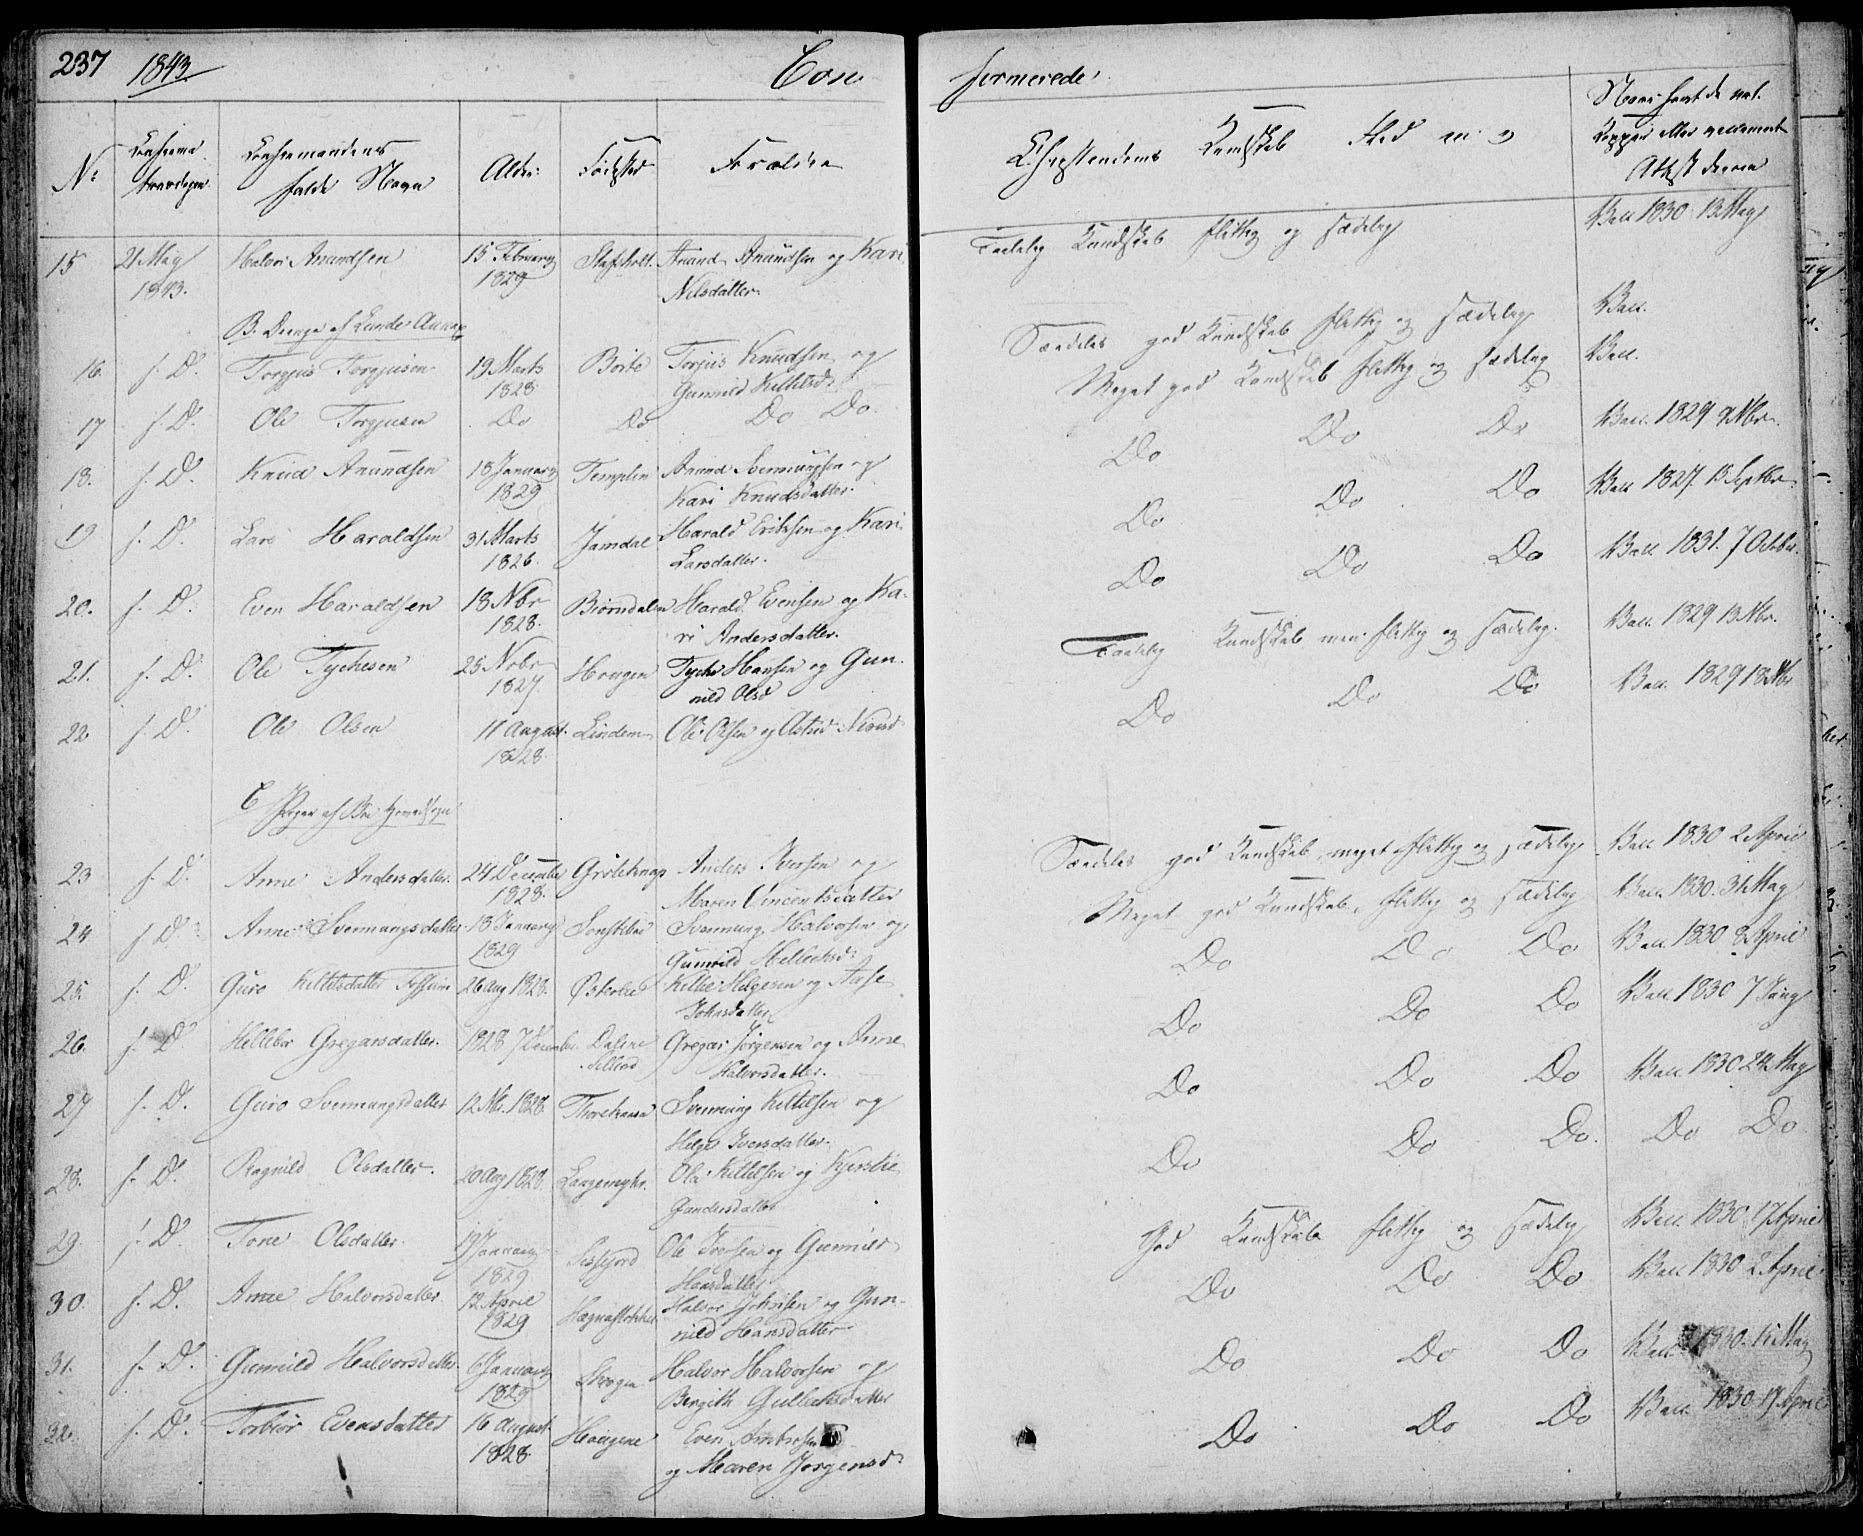 237 1843 Con firmerede
No Confirma Confirmandens Alder. Fødested Forældre Christendoms Kundskab Flid m: v Naar havt de nat.
tionsdagen fulde Navn Kopper eller vaccineret
Attest derom
15 21 May Halvor Anundsen 15 Februar Anund Anundsen og Kari Taalelig Kundskab flittig og sædelig Vacc. 1830 13 May
1843. 1829 Nilsdatter.
B. Drenge af Lunde Annex
16 s. D. Torgjus Torgjusen 19 Marts Borte Torjus Knudsen og Særdeles god Kundskab flittig og sædelig Vacc.
1828 Gunnild Kittelsd.
17 s. D. Ole Torgjusen Do Do Do Do. Meget god Kundskab flittig og sædelig Vacc.
18. s. D. Knud Anundsen 18 Januar Templen Anund Svenungsen og Do Do Do Vacc. 1829 9 Nbr.
1829 Kari Knudsdatter.
19 s. D. Lars Haraldsen 31 Marts Jamdal Harald Eriksen og Kari Do Do Do Vacc 1827. 13 Septbr
1826. Larsdatter.
20. s. D. Even Haraldsen 18 Nbr Biørndalen Harald Evensen og Ka- Do Do Do Vacc 1831. 7 Octobr.
1828. ri Andersdatter.
21. s. D. Ole Tychesen 25 Nobr Hougen Tyche Hansen og Gun- Taalelig Kundskab men flittig og sædelig. Vacc. 1829 13 Nbr.
1827. nild Olsd
22 s. D. Ole Olsen 11 August. Lindem Ole Olsen og Do Do Do Vacc. 1829 18 Nbr
1828.
C Piger af Bø Hovedsogn
23 s. D. Anne Andersdatter. 24 December Anders Iversen og Særdeles god Kundskab, meget flittig og sædelig Vacc. 1830 2 April
1828. Maren Vincentsdatter
24 s D. Anne Svennungsdatter 18 January Svennung Halvorsen og Meget god Kundskab, flittig og sædelig Vacc. 1830. 31 May
1829 Gunnild
25. s. D. Guro Kittelsdatter 26 Aug 1828. Østerlie Kittel Helgesen og Aase Do Do Do Vacc. 1830 2 April
Johnsdatter
26. s. D Hellebor Gregarsdatter. 1828 7 December. Dalene Gregar Jørgensen og Anne Do Do Do Vacc. 1830 7
Halvorsdatter.
27 s. D. Guro Svennungsdatter 12 Nbr. 1828. Svennung Kittelsen og Do Do Do Vacc. 1830 24 May
Helge Iversdatter.
28. s. D. Ragnild Olsdatter. 20 Aug 1828. Langemyhr. Ole Kittelsen og Kjerstie Do Do Do. Do Do
Gundersdatter
29 s. D. Tone Olsdatter. 19 January Ole Iversen og Gunnild God Kundskab flittig og sædelig Vacc. 1830. 17 April
1829 Hansdatter
30. s. D. Anne Halvorsdatter 12 April Halvor Johnsen og Gun- Do Do Do Vacc. 1830 2 April
1829 nild Hansdatter
31. s. D. Gunnild Halvorsdatter 6 January Skogen Halvor Halvorsen og Do Do Do Vacc. 1830. May
1829 Bergith Gullaksdatter
32. s. D. Torbiør Evensdatter 16 August Hougene Even Do Do Do Vacc. 1830 17 April
1828 og Maren Jørgensd.